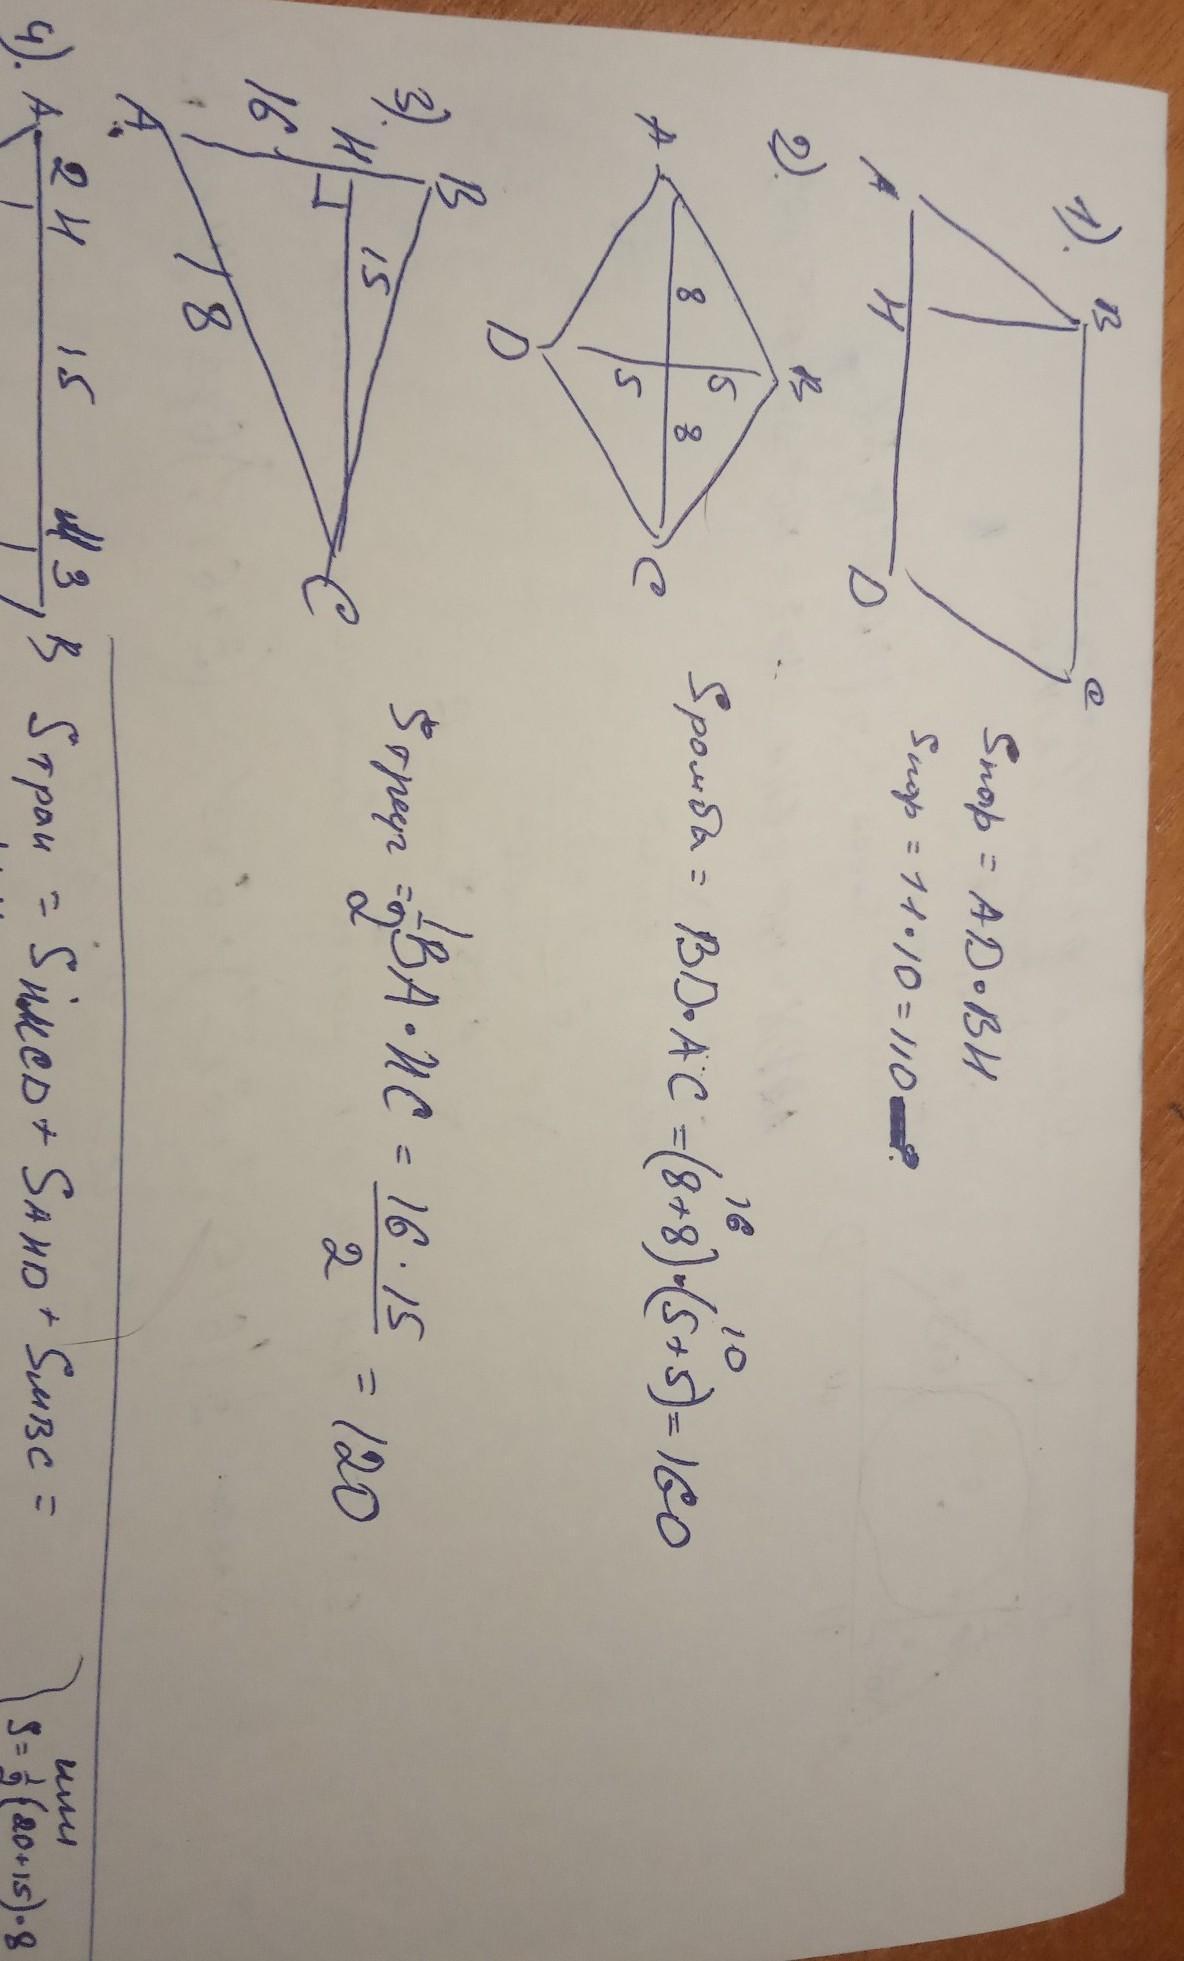 1).
B
C
A
H
D
Sпар = AD·BH
Sпар = 11·10 = 110
2).
A
B
8
5
5
8
D
C
16 10
Sромба = BD·AC = (8+8)·(5+5) = 160
3).
B
H
15
16
A
18
C
Sтреуг = 1/2 BA·HC = 16·15/2 = 120
4). A 2 H 15 M 3 B
Sтрап = SHMCD + SAHD + SMBC =
или
S = 1/2 (20+15)·8